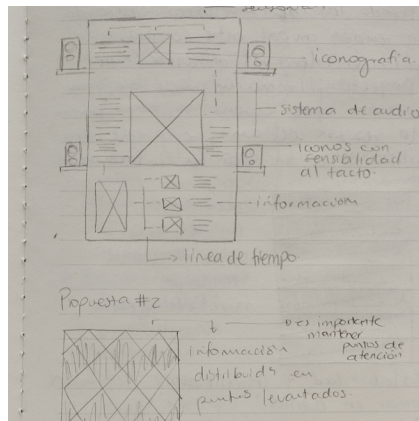 iconografia.
sistema de audio
iconos con
sensibilidad
al tacto.
informacion
linea de tiempo
Propuesta #2
es importante
mantener
puntos de
atención
información
distribuida en
puntos levantados.